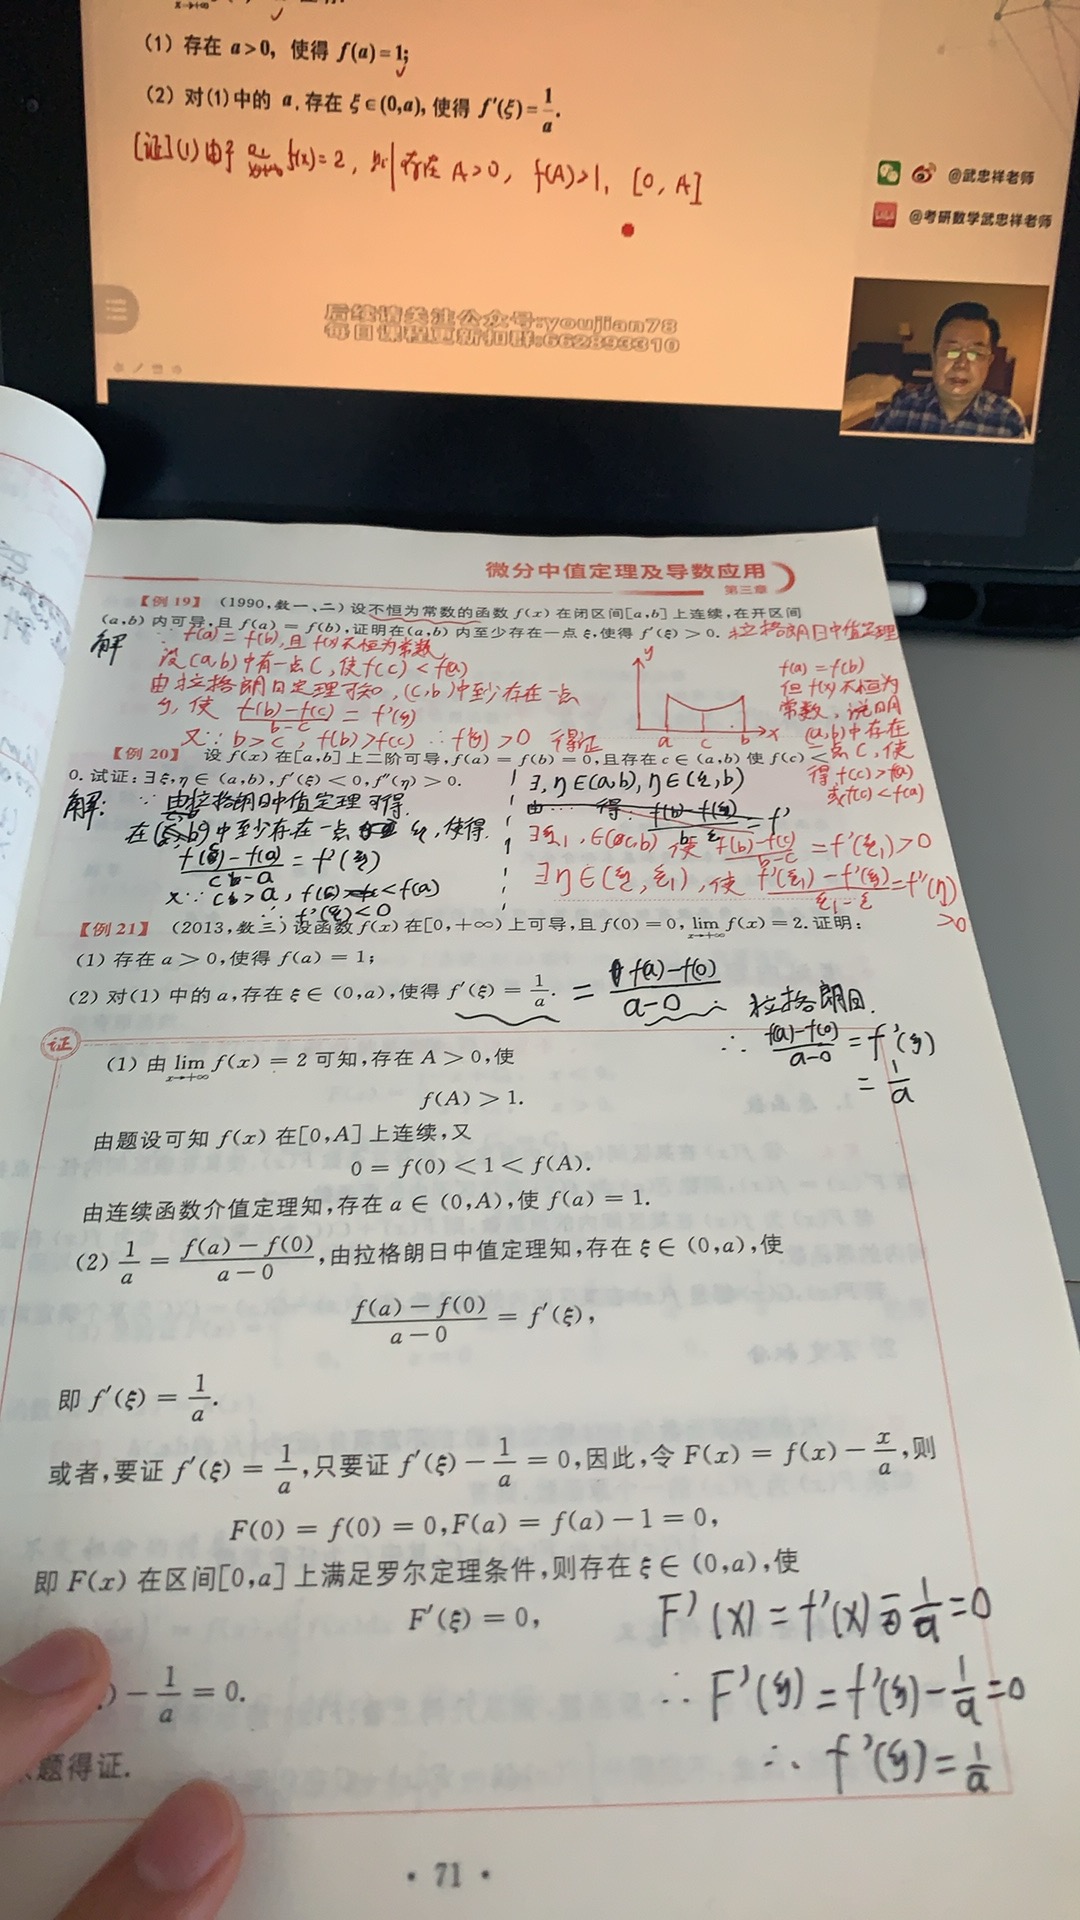 (1) 存在 a>0, 使得 f(a)=1;
(2) 对(1)中的 a, 存在 ξ∈(0,a), 使得 f′(ξ)=1/a.
[证](1) 由于 f(x)=2, 则存在 A>0, f(A)>1, [0, A]
@武忠祥老师
@考研数学武忠祥老师
后续请关注公众号:youjian78
每日课程更新扣群:662893310
微分中值定理及导数应用
第三章
【例 19】 (1990,数一、二)设不恒为常数的函数 f(x) 在闭区间[a,b]上连续,在开区间
(a,b) 内可导,且 f(a) = f(b),证明在(a,b) 内至少存在一点 ξ,使得 f′(ξ) > 0. 拉格朗日中值定理
解 ∵ f(a) = f(b), 且 f(x)不恒为常数
设(a,b)中有一点C, 使f(c) < f(a)
由拉格朗日定理可知, (c,b)中至少存在一点
ξ, 使 (f(b)-f(c))/(b-c) = f'(ξ)
又∵ b>c, f(b)>f(c) ∴ f'(ξ)>0 得证
y
a c b x
f(a)=f(b)
但f(x)不恒为
常数, 说明
(a,b)中存在
一点C, 使
得f(c)>f(a)
或f(c)<f(a)
【例 20】 设 f(x) 在[a,b]上二阶可导,f(a) = f(b) = 0,且存在 c ∈ (a,b) 使 f(c) <
0. 试证: ∃ξ,η ∈ (a,b), f′(ξ) < 0, f″(η) > 0.
解: ∵ 由拉格朗日中值定理可得
在 中至少存在一点 ξ, 使得
= f'(ξ)
又∵ c>a, f(c)<f(a)
∴ f'(ξ)<0
∃, η∈(a,b), η∈(ξ,b)
由 得: f(b)-f(ξ) = f'
∃ξ₁,∈(c,b) 使 (f(b)-f(c))/(b-c) = f'(ξ₁)>0
∃η∈(ξ,ξ₁), 使 (f'(ξ₁)-f'(ξ))/(ξ₁-ξ) = f''(η)
>0
【例 21】 (2013,数三)设函数 f(x) 在[0,+∞) 上可导,且 f(0) = 0, lim x→+∞ f(x) = 2. 证明:
(1) 存在 a > 0,使得 f(a) = 1;
(2) 对(1) 中的 a,存在 ξ ∈ (0,a),使得 f′(ξ) = 1/a. = (f(a)-f(0))/(a-0)
∵ 拉格朗日.
∴ (f(a)-f(0))/(a-0) = f'(ξ)
= 1/a
证
(1) 由 lim x→+∞ f(x) = 2 可知,存在 A > 0,使
f(A) > 1.
由题设可知 f(x) 在[0,A] 上连续,又
0 = f(0) < 1 < f(A).
由连续函数介值定理知,存在 a ∈ (0,A),使 f(a) = 1.
(2) 1/a = (f(a) − f(0))/(a − 0),由拉格朗日中值定理知,存在 ξ ∈ (0,a),使
(f(a) − f(0))/(a − 0) = f′(ξ),
即 f′(ξ) = 1/a.
或者,要证 f′(ξ) = 1/a,只要证 f′(ξ) − 1/a = 0,因此,令 F(x) = f(x) − x/a,则
F(0) = f(0) = 0,F(a) = f(a) − 1 = 0,
即 F(x) 在区间[0,a] 上满足罗尔定理条件,则存在 ξ ∈ (0,a),使
F′(ξ) = 0,
) − 1/a = 0.
题得证.
F'(x) = f'(x) - 1/a = 0
∴ F'(ξ) = f'(ξ) - 1/a = 0
∴ f'(ξ) = 1/a
· 71 ·